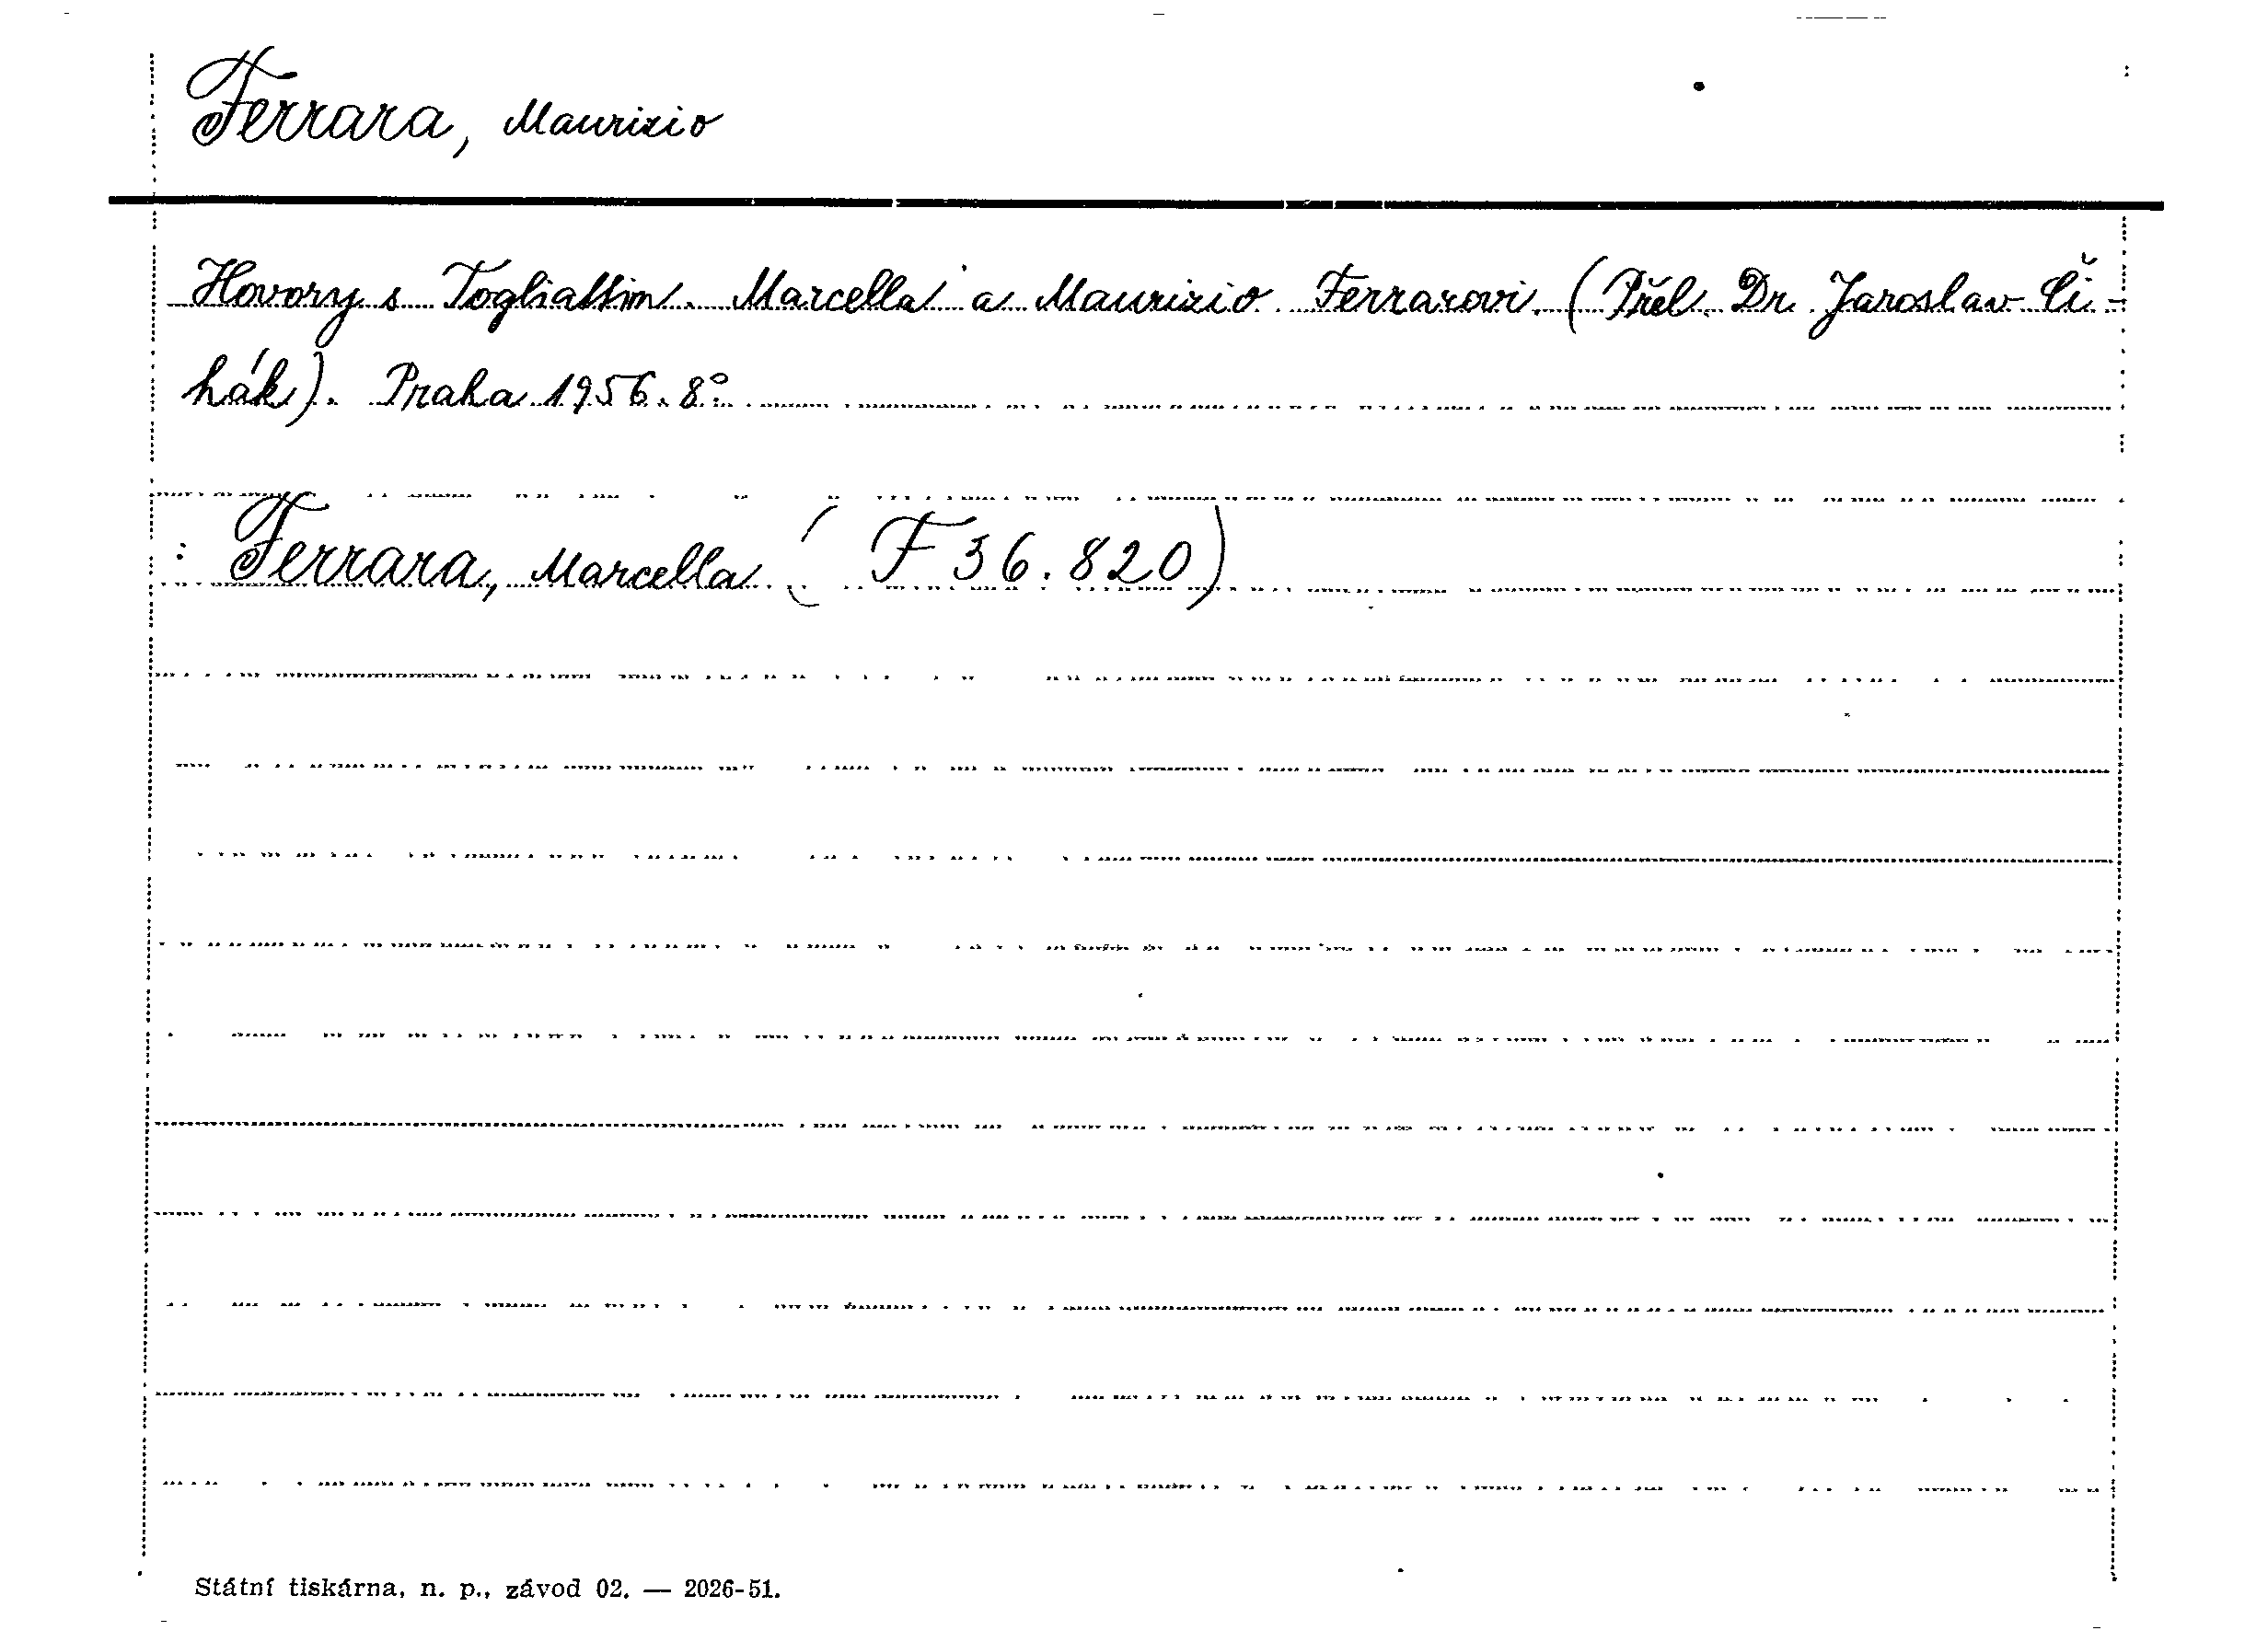 Ferrara, Maurizio
Hovory s Togliattim. Marcella a Maurizio Ferrarovi. (Přel. Dr. Jaroslav Či-
hák). Praha 1956. 8°.
: Ferrara, Marcella (F 36.820)
Státní tiskárna, n. p., závod 02. — 2026-51.